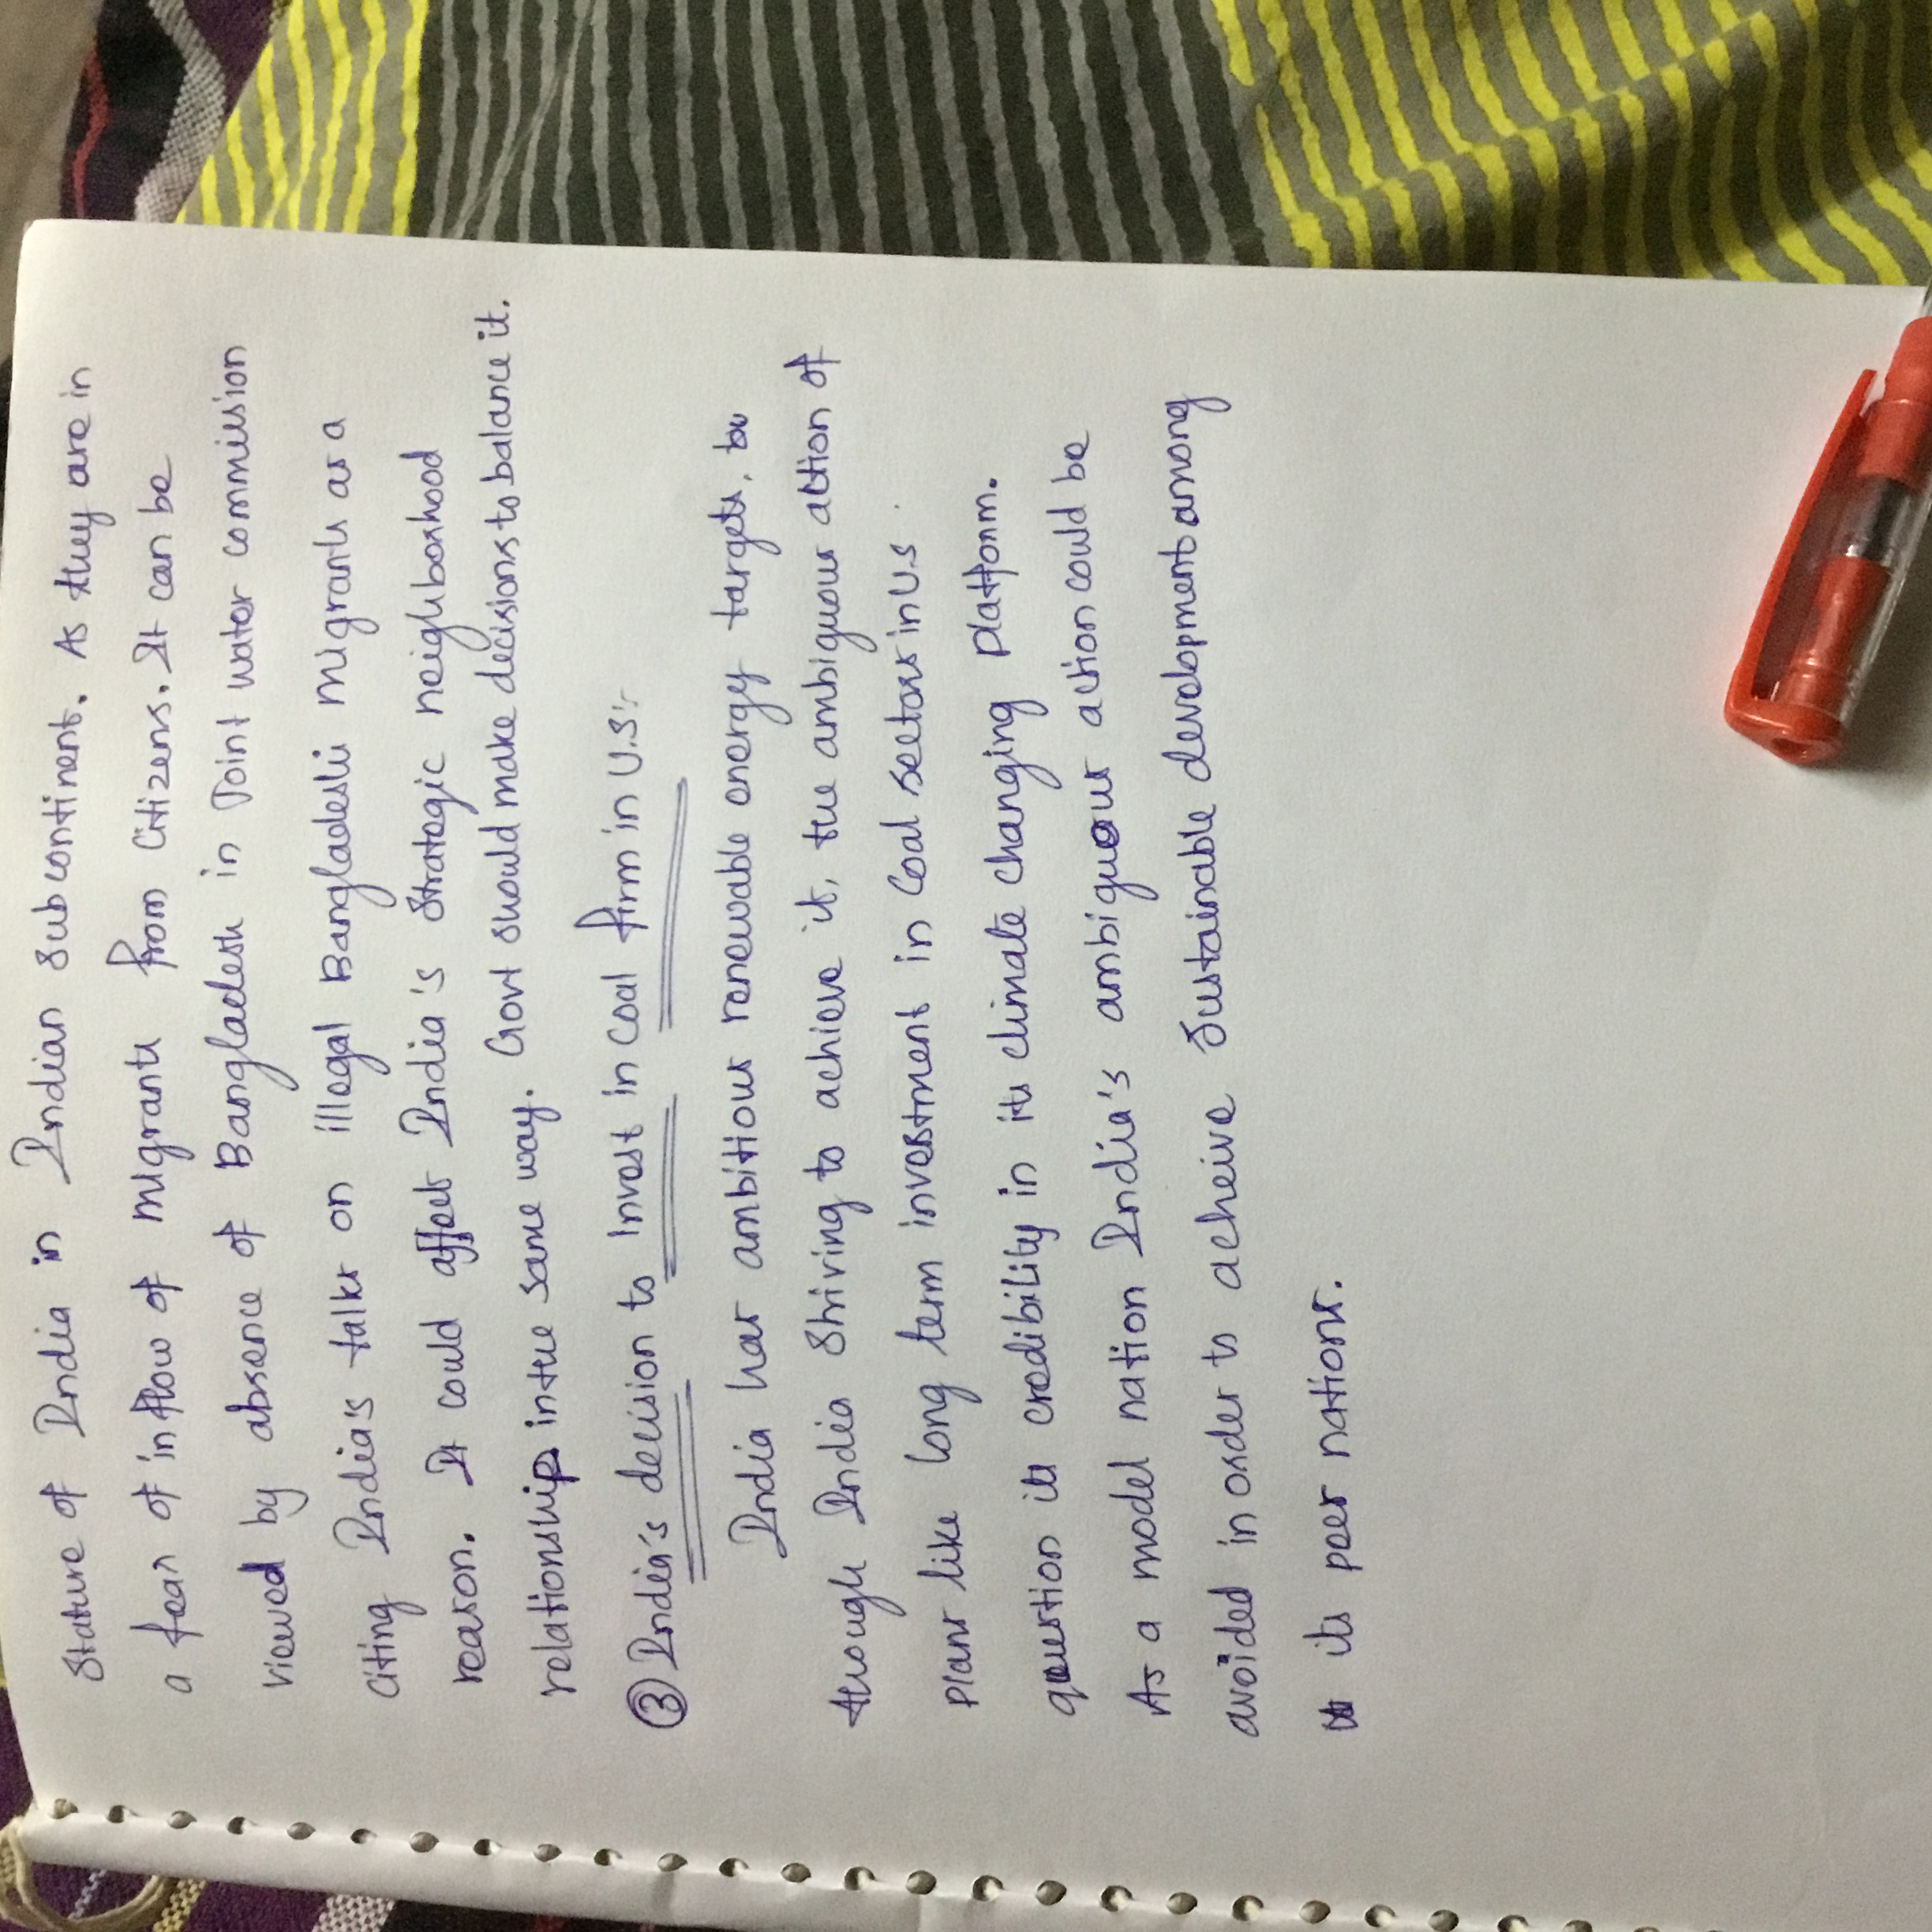 Stature of India in Indian Subcontinent. As they are in
a fear of inflow of migrants from Citizens. It can be
viewed by absence of Bangladesh in Joint water commission
citing India's talks on illegal Bangladeshi Migrants as a
reason. It could affect India's Strategic neighborhood
relationship in the same way. Govt should make decisions to balance it.
③ India's decision to Invest in Coal firm in U.S:-
India has ambitious renewable energy targets,
through India Shriving to achieve it, the ambiguous action of
plans like long term investment in Coal sectors in U.S.
question its credibility in its climate changing platform.
As a model nation India's ambiguous action could be
avoided in order to acheive Sustainable development among
its peer nations.